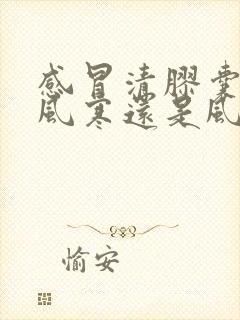 感冒清膠囊
風寒還是風
愉安